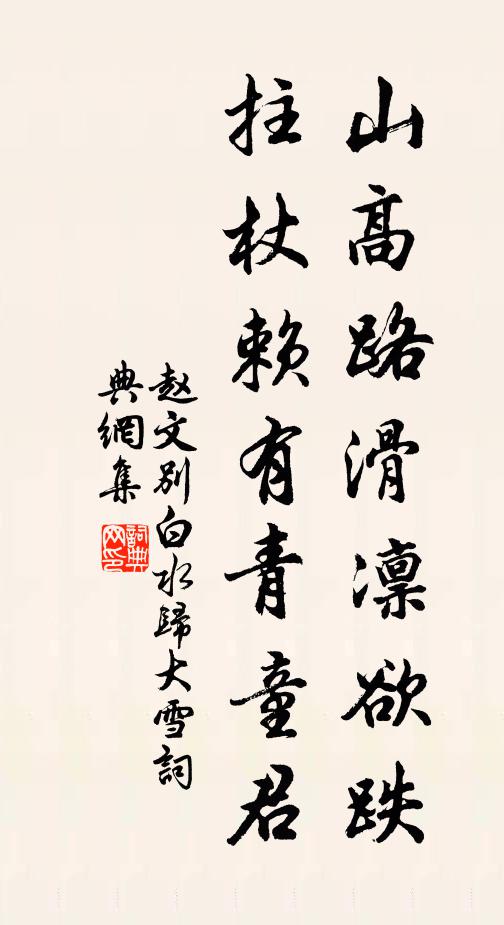 山高路滑凛欲跌
拄杖赖有青童君
赵文别白水歸大雪詞
典網集
詞典网印